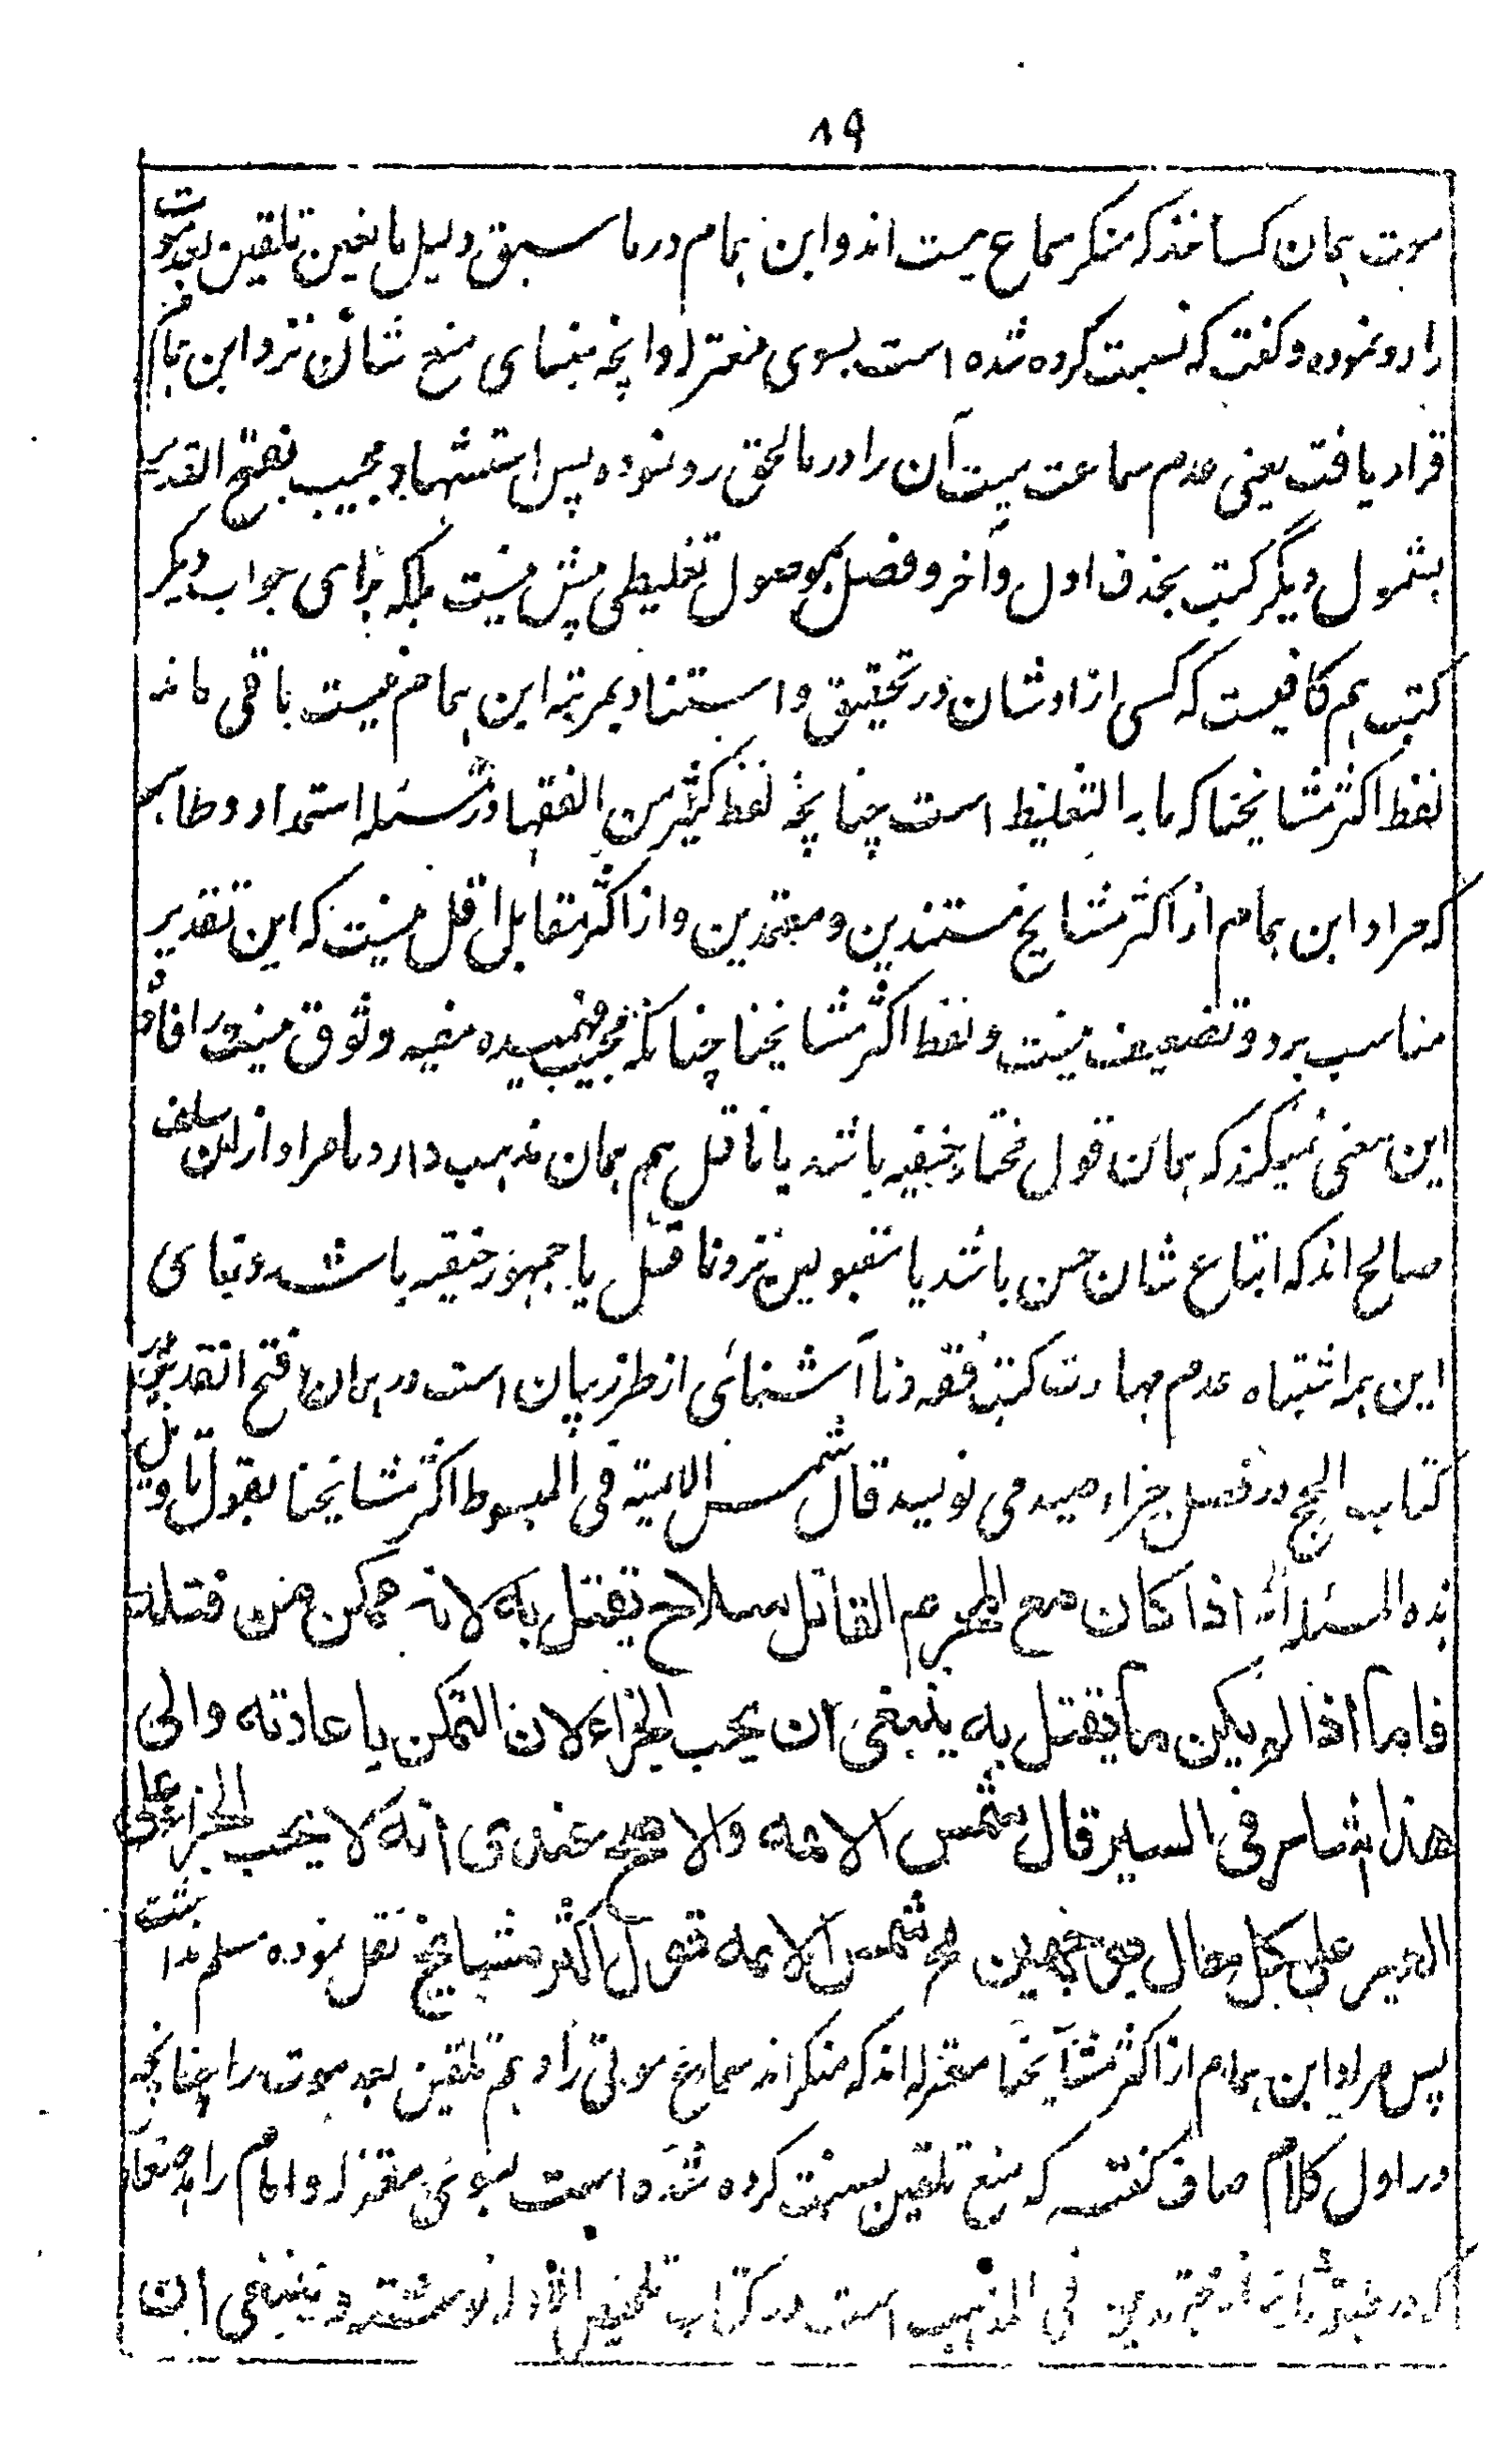 ۱۹
موت همان کسانند که منکر سماع میت اند و ابن همام در ما سبق دلیل مانعین تلقین بعد موت
را رد نموده و گفت که نسبت کرده شده است بسوی معتزله و آنچه مبنای منع شان نزد ابن همام
قرار یافت یعنی عدم سماعت میت آن را در ما لحق رد نموده پس استشهاد مجیب بفتح القدیر
بشمول دیگر کتب بحذف اول و آخر و فصل موصول تغلیطی بیش نیست بلکه برای جواب دیگر
کتب هم کافیست که کسی ازاوشان در تحقیق و استناد بمرتبه ابن همام نیست باقی ماند
لفظ اکثر مشایخنا که مابه التغلیط است چنانچه لفظ کثیر من الفقهاء در مسئله استمداد و مطالبه
که مراد ابن همام از اکثر مشایخ مستندین و معتمدین و از اکثر مقابل اقل نیست که این تقدیر
مناسب رد و تضعیف نیست و لفظ اکثر مشایخنا چنانکه مجیب فهمیده مفید وثوق نیست و افاده
این معنی نمیکند که همان قول مختار حنفیه باشد یا ناقل هم همان مذهب دارد یا مراد ازان سلف
صالح اند که اتباع شان حسن باشد یا مقبولین نزد ناقل یا جمهور حنفیه باشند و بنای
این همه اشتباه عدم مهارت کتب فقه و ناآشنائی از طرز بیان است در همان فتح القدیر در
کتاب الحج در فصل جزاء صید می نویسد قال شمس الایمة فی المبسوط اکثر مشایخنا یقول تاویل
هذه المسئلة انه اذا کان مع المحرم القاتل سلاح یقتل به لانه متمکن من قتله
فاما اذا لم یکن ما یقتل به ینبغی ان یجب الجزاء لان التمکن باعارته والی
هذا اشار فی السیر قال شمس الائمه والاصح عندی انه لا یجب الجزاء علی
المعیر علی کل حال همچنین شمس الائمه قول اکثر مشایخ نقل نموده مسلم نداشت
پس مراد ابن همام از اکثر مشایخنا معتزله اند که منکر اند سماع موتی را و هم تلقین بعد موت را چنانچه
در اول کلام صاف گفته که منع تلقین نسبت کرده شده است بسوئی معتزله و امام زاهد صفار
که در طبقه ثانیه از مجتهدین فی المذهب است در کتاب تلخیص الادله نوشته و ینبغی ان